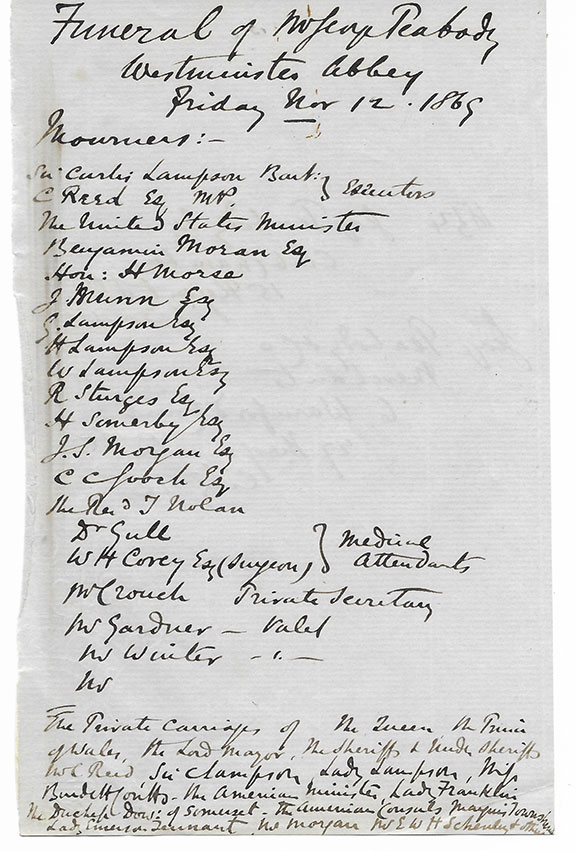 Funeral of Mr George Peabody
Westminster Abbey
Friday Nov 12. 1869
Mourners:-
Sir Curtis Lampson Bart:
C Reed Esq MP. } Executors
The United States Minister
Benjamin Moran Esq
Hon: H Morse
J Bunn Esq
G. Lampson Esq
H Lampson Esq
W Lampson Esq
R Sturges Esq
H Somerby Esq
J.S. Morgan Esq
C C Gooch Esq
The Revd T Nolan
Dr Gull
W H Covey Esq (Surgeon) } Medical Attendants
Mr Crouch Private Secretary
Mr Gardner - Valet
Mr Winter - " -
Mr
The Private Carriages of The Queen the Prince
of Wales, the Lord Mayor, The Sheriffs & Under Sheriffs
Mr C Reed Sir C Lampson Lady Lampson, Miss
Burdett Coutts - the American Minister, Lady Franklin
The Duchess Dow: of Somerset - the American Consuls Marquis Townshend
Lady Emerson Tennant, Mr Morgan Mr E W H Schenley & others